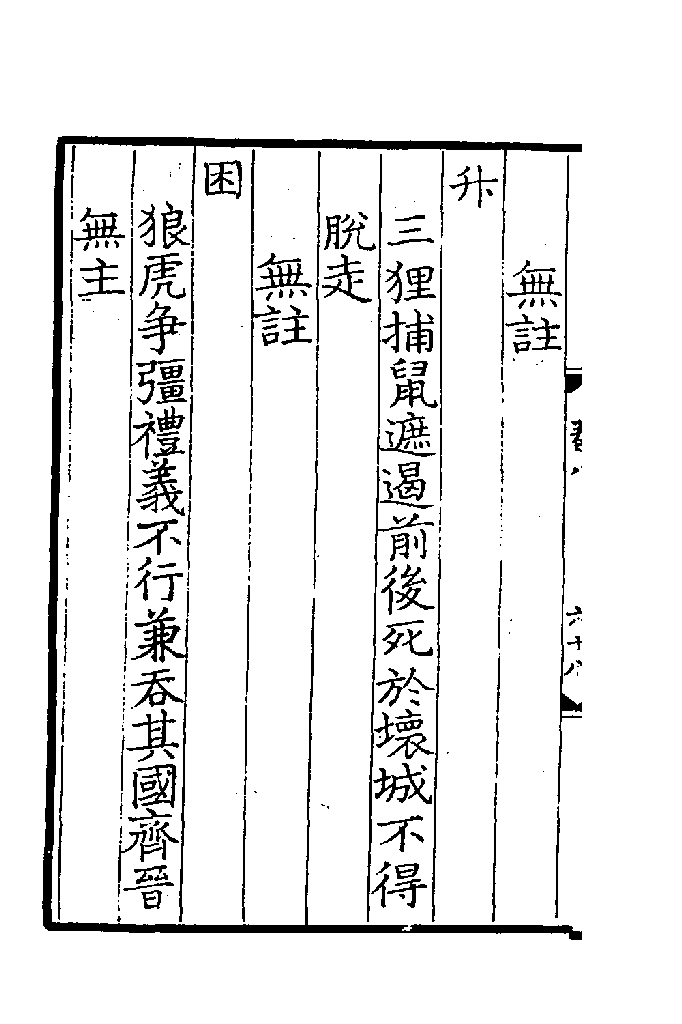 無註
升
三狸捕鼠遮遏前後死於壞城不得
脫走
無註
困
狼虎争彊禮義不行兼吞其國齊晉
無主
六十八